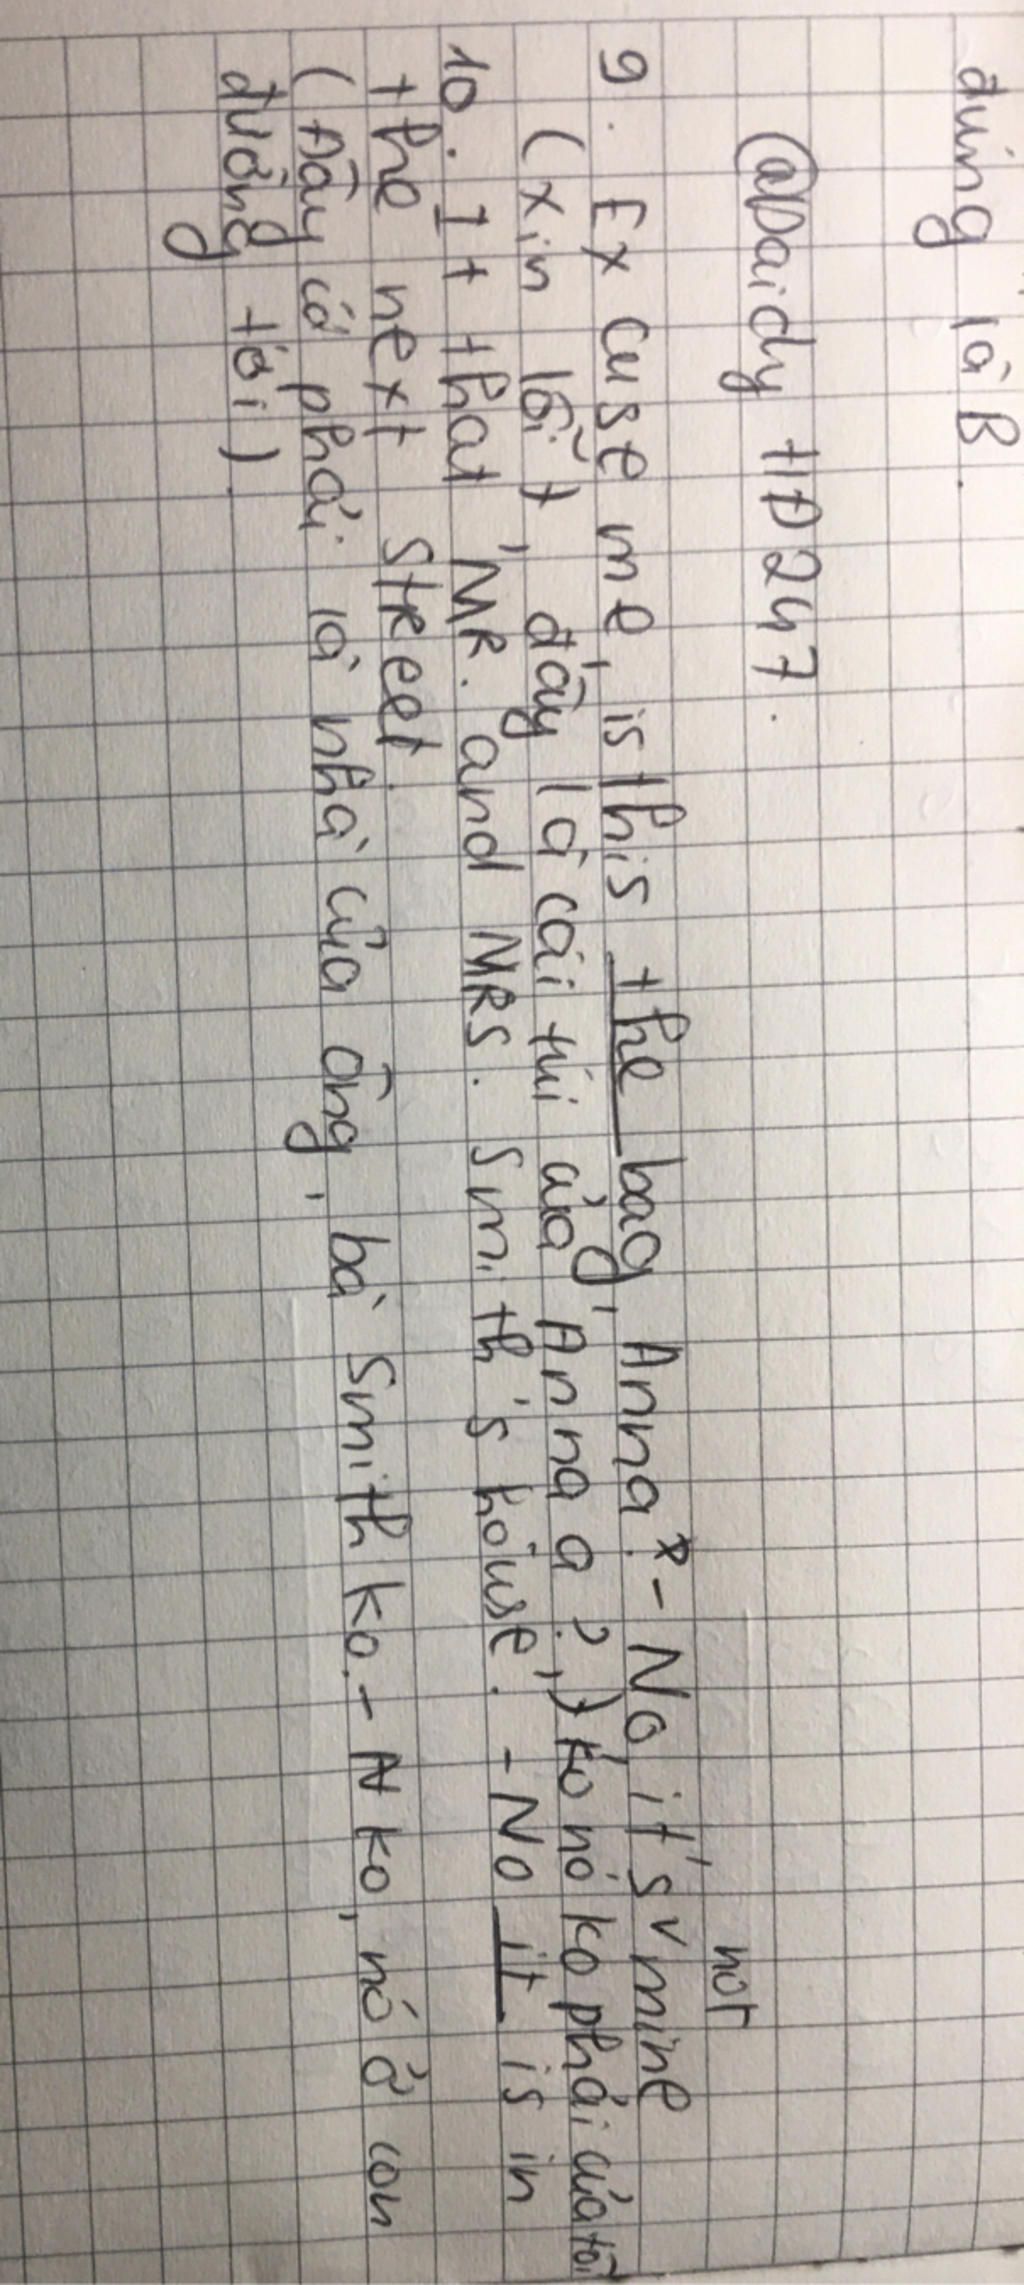 đúng là B.
@Daidy HĐ247.
9. Excuse me, is this the bag, Anna. - No, it's not mine
(xin lỗi), đây là cái túi của Anna a?,) ko nó ko phải của tôi
10. It that, MR. and MRS. Smith's house. - No it is in
the next street.
(Đây có phải là nhà của ông, bà Smith ko. - ko, nó ở con
đường tới).